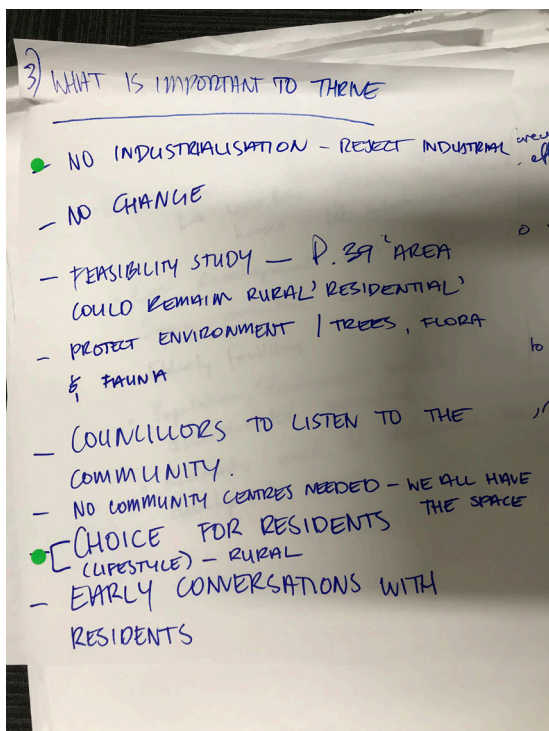 3) WHAT IS IMPORTANT TO THRIVE
- NO INDUSTRIALISATION - REJECT INDUSTRIAL
- NO CHANGE
- FEASIBILITY STUDY - P.39 'AREA
COULD REMAIM RURAL' RESIDENTIAL'
- PROTECT ENVIRONMENT / TREES, FLORA
& FAUNA
- COUNCILLORS TO LISTEN TO THE
COMMUNITY.
- NO COMMUNITY CENTRES NEEDED - WE ALL HAVE
THE SPACE
- [CHOICE FOR RESIDENTS
(LIFESTYLE) - RURAL
- EARLY CONVERSATIONS WITH
RESIDENTS